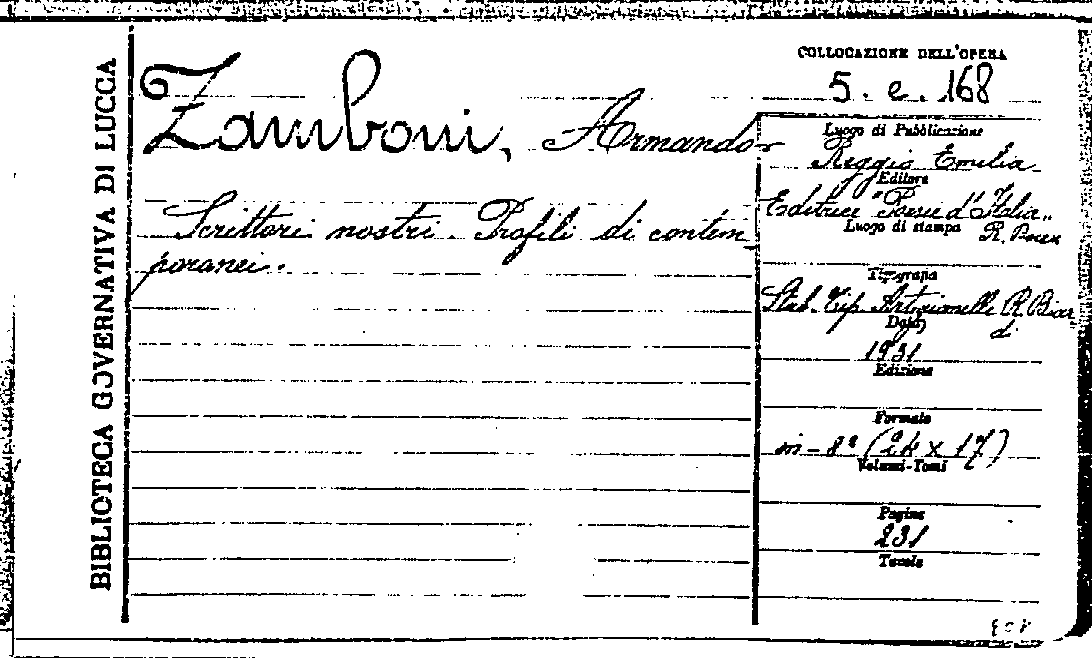 BIBLIOTECA GOVERNATIVA DI LUCCA
Zamboni, Armando
Scrittori nostri. Profili di contem-
poranei.
COLLOCAZIONE DELL'OPERA
5. e. 168
Luogo di Pubblicazione
Reggio Emilia
Editore
Editrice "Poesie d'Italia"
Luogo di stampa
Tipografia
Stab. Tip. Artigianelli
Data
1931
Edizione
Formato
in-8° (24 x 17)
Volumi-Tomi
Pagine
231
Tavole